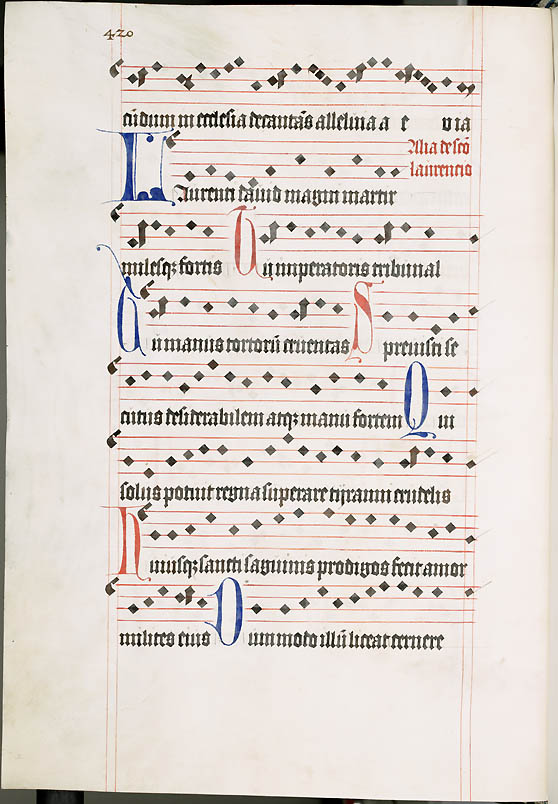 420
cūdum in ecclesia decantās alleluia a e via
Alia de scō
laurencio
Laurenti david magni martir
milesqz fortis Tu imperatoris tribunal
Tu manus tortorū cruentas Sprevisti se
cutus desiderabilem atqz manu fortem Qui
solus potuit regna superare tyranni crudelis
Huiusqz sancti saguinis prodigos fecit amor
milites eius Dummodo illū liceat cernere